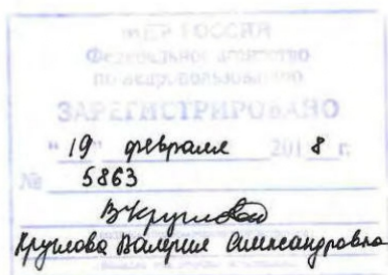 РОССИЯ
Федеральное агентство
по недропользованию
ЗАРЕГИСТРИРОВАНО
"19" февраля 2018 г.
№ 5863
Круглова Валерия Александровна